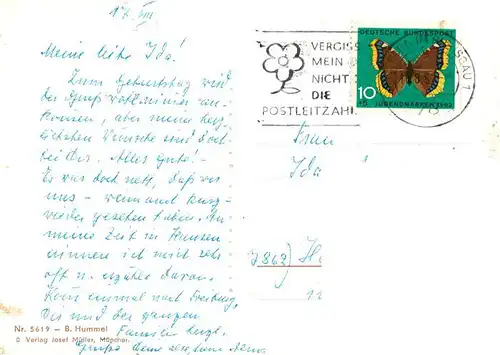 17. VIII.
Meine liebe Ida!
Zum Geburtstag wird
der Gruß wohl nimmer an-
kommen, aber meine herz-
lichsten Wünsche sind doch
bei Dir. Alles Gute! –
Es war doch nett, daß wir
uns – wenn auch kurz –
wieder gesehen haben. An
meine Zeit in Hausen
erinnere ich mich sehr
oft u. erzähle davon.
Komm einmal nach Freiburg.
Dir und der ganzen
Familie herzl.
Grüße
Nr. 5619 — B. Hummel
© Verlag Josef Müller, München
VERGISS
MEIN
NICHT
DIE
POSTLEITZAHL
DEUTSCHE BUNDESPOST
10
+5 JUGENDMARKE 1962
SGAU 1
Frau
Ida
7863) H